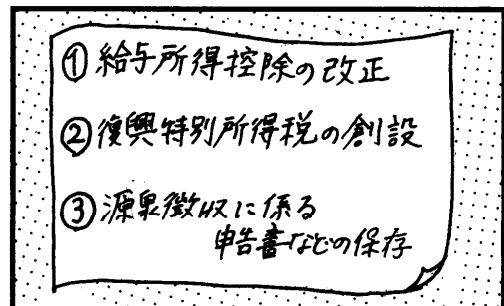 ①給与所得控除の改正
②復興特別所得税の創設
③源泉徴収に係る
申告書などの保存